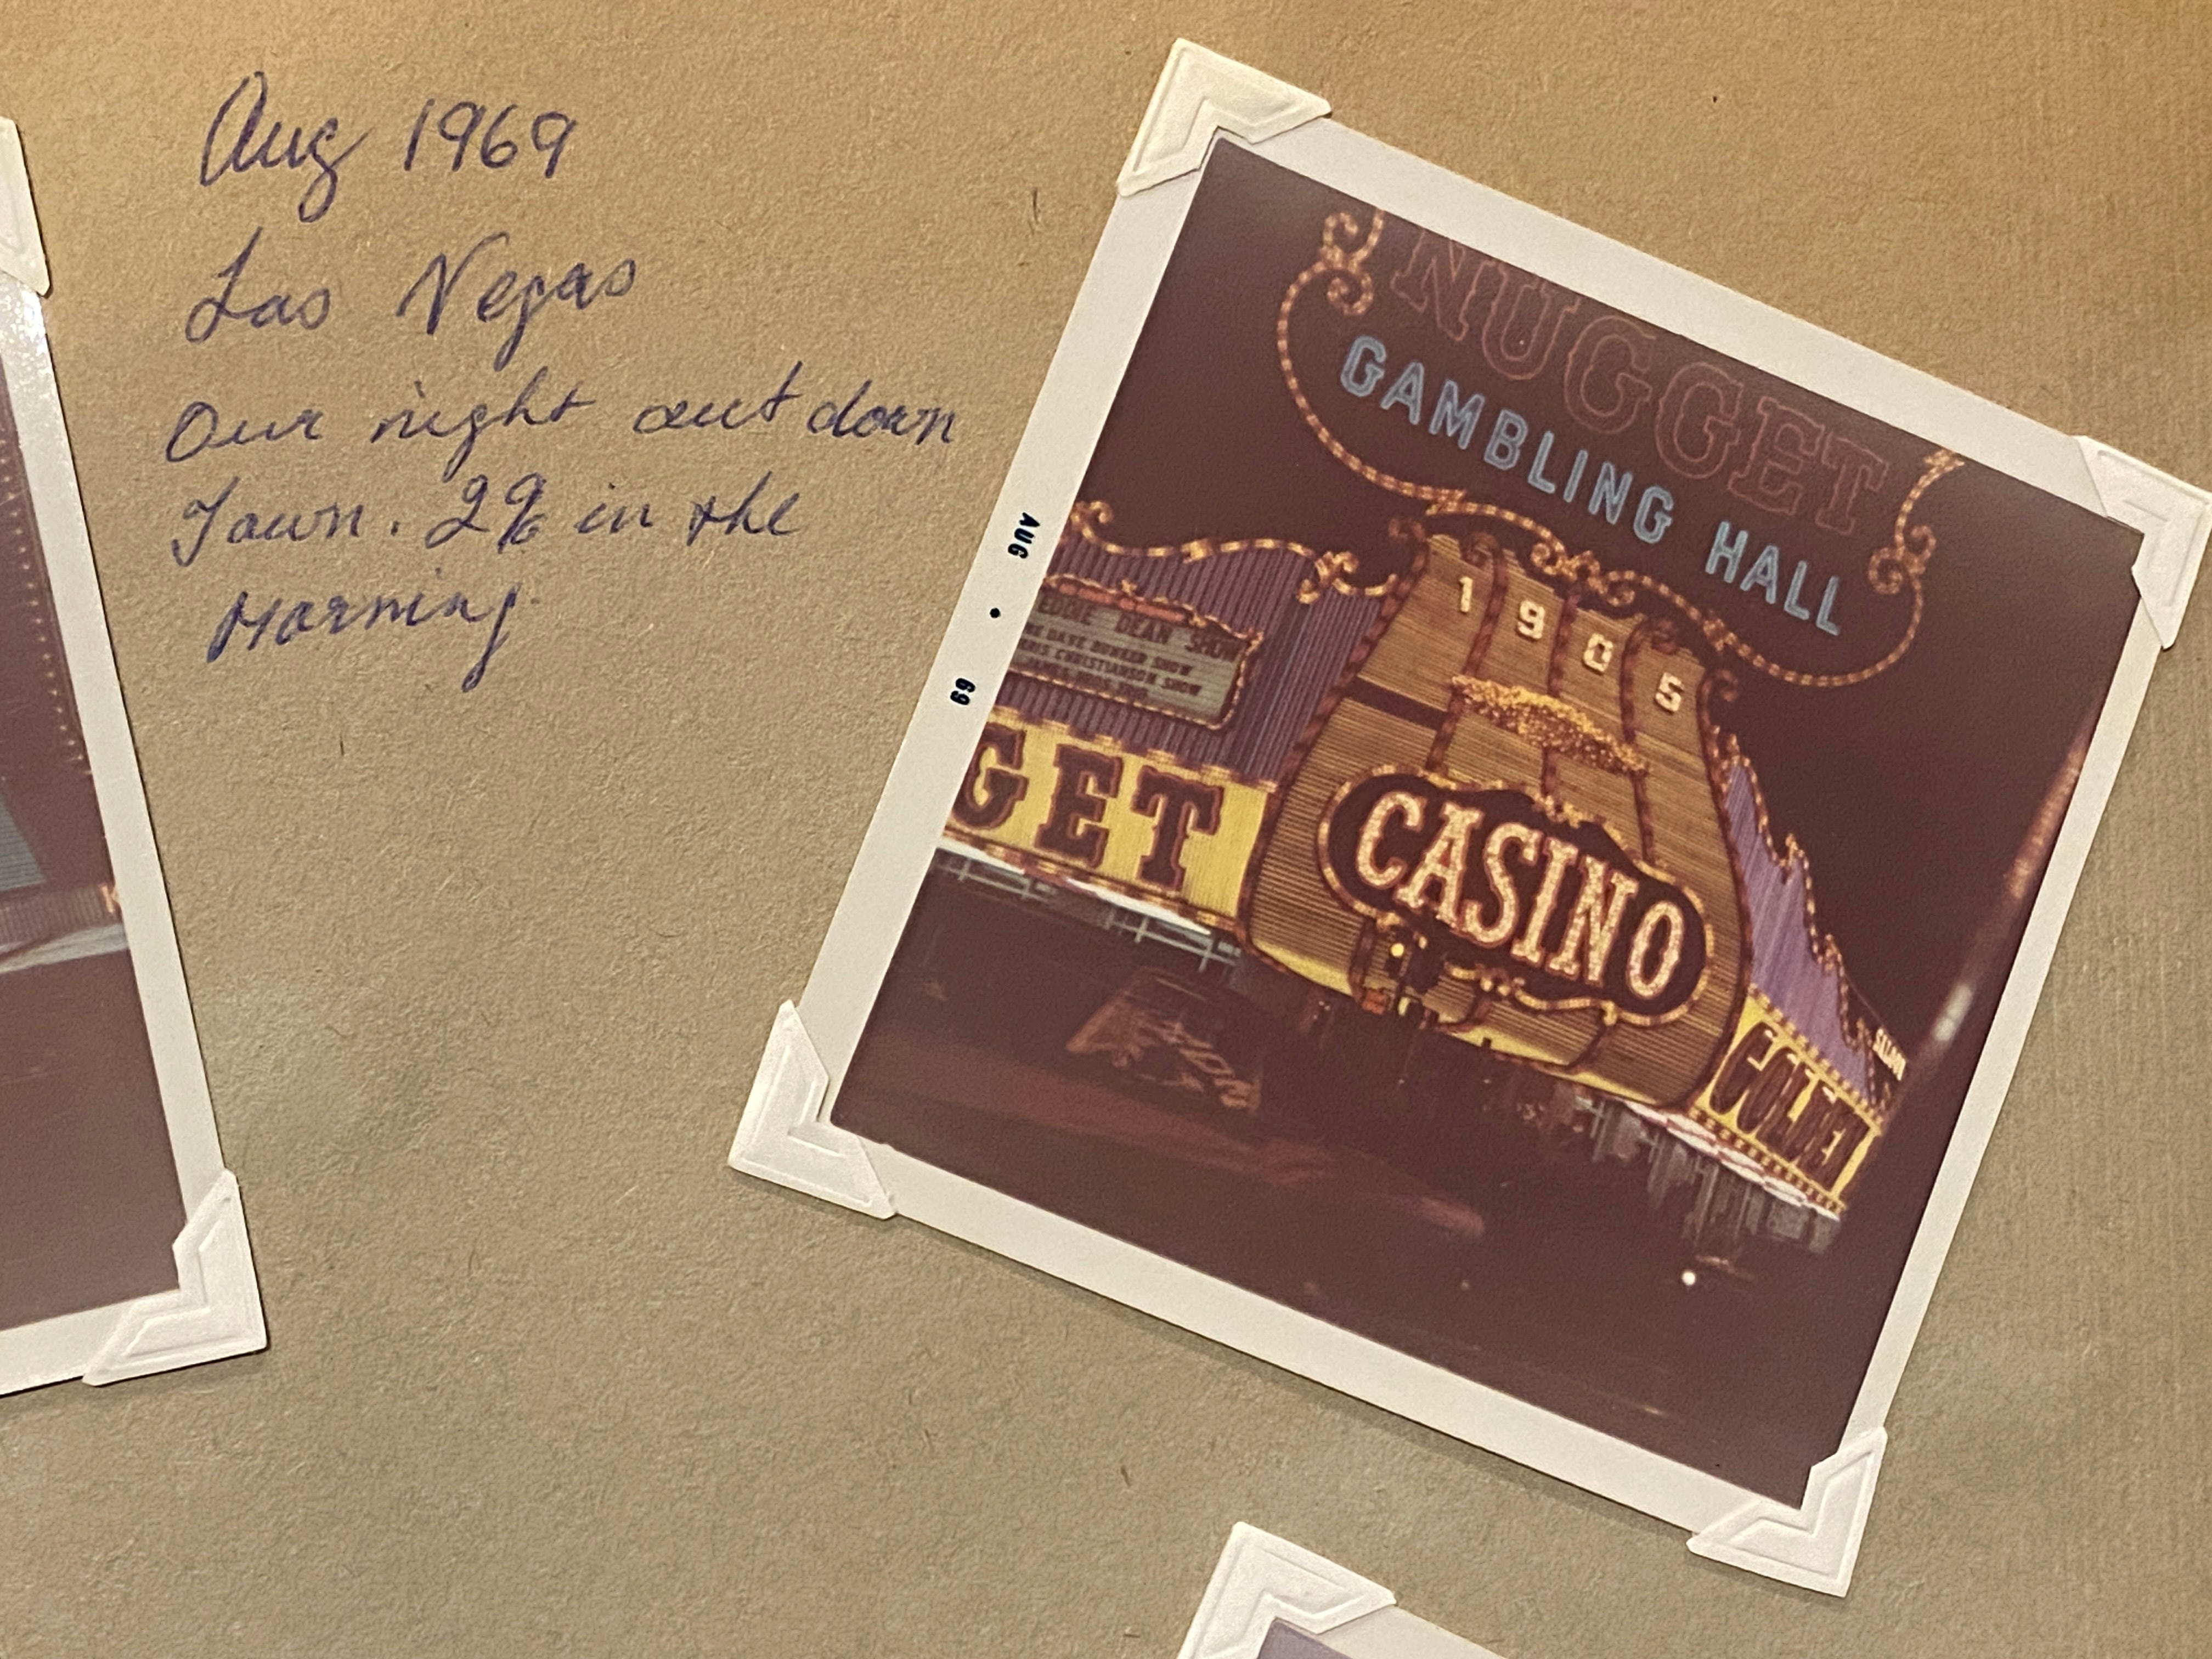 Aug 1969
Las Vegas
Our night out down
Town. 2% in the
Morning.
AUG • 69
NUGGET
GAMBLING HALL
1905
EDDIE DEAN SHOW
DAVE BUNKER SHOW
CHRISTIANSON SHOW
GET
CASINO
GOLDEN